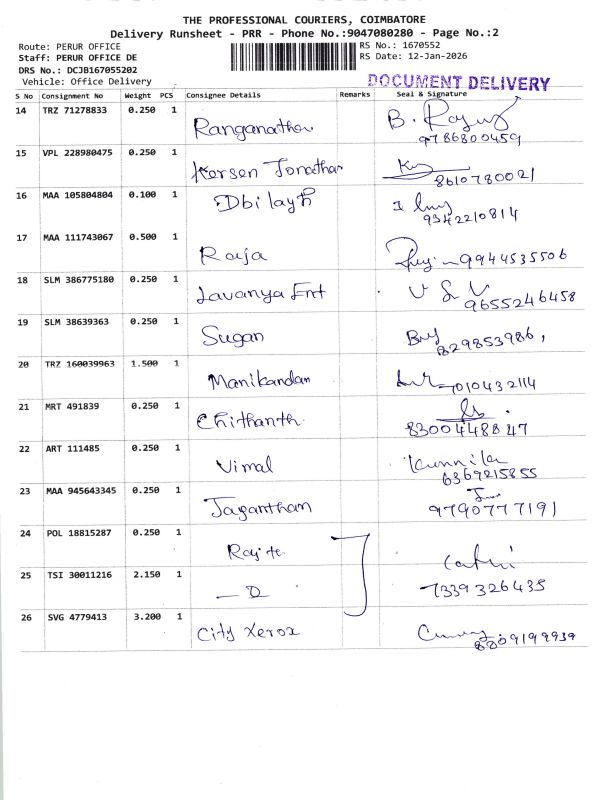 THE PROFESSIONAL COURIERS, COIMBATORE
Delivery Runsheet - PRR - Phone No.:9047080280 - Page No.:2
Route: PERUR OFFICE RS No.: 1670552
Staff: PERUR OFFICE DE RS Date: 12-Jan-2026
DRS No.: DCJB167055202
Vehicle: Office Delivery DOCUMENT DELIVERY
S No Consignment No Weight PCS Consignee Details Remarks Seal & Signature
14 TRZ 71278833 0.250 1 Ranganathan B.
9786800459
15 VPL 228980475 0.250 1 Kersen Jonathan
8610780021
16 MAA 105804804 0.100 1
9342210814
17 MAA 111743067 0.500 1 Raja 9944535506
18 SLM 386775180 0.250 1 Lavanya Ent
9655246458
19 SLM 38639363 0.250 1 Sugan
829853986,
20 TRZ 160039963 1.500 1 Manikandan 7010432114
21 MRT 491839 0.250 1 Chithanth
8300448847
22 ART 111485 0.250 1 Vimal
6369215855
23 MAA 945643345 0.250 1 Jaganthan
9790777191
24 POL 18815287 0.250 1
25 TSI 30011216 2.150 1 7339326435
26 SVG 4779413 3.200 1 City Xerox